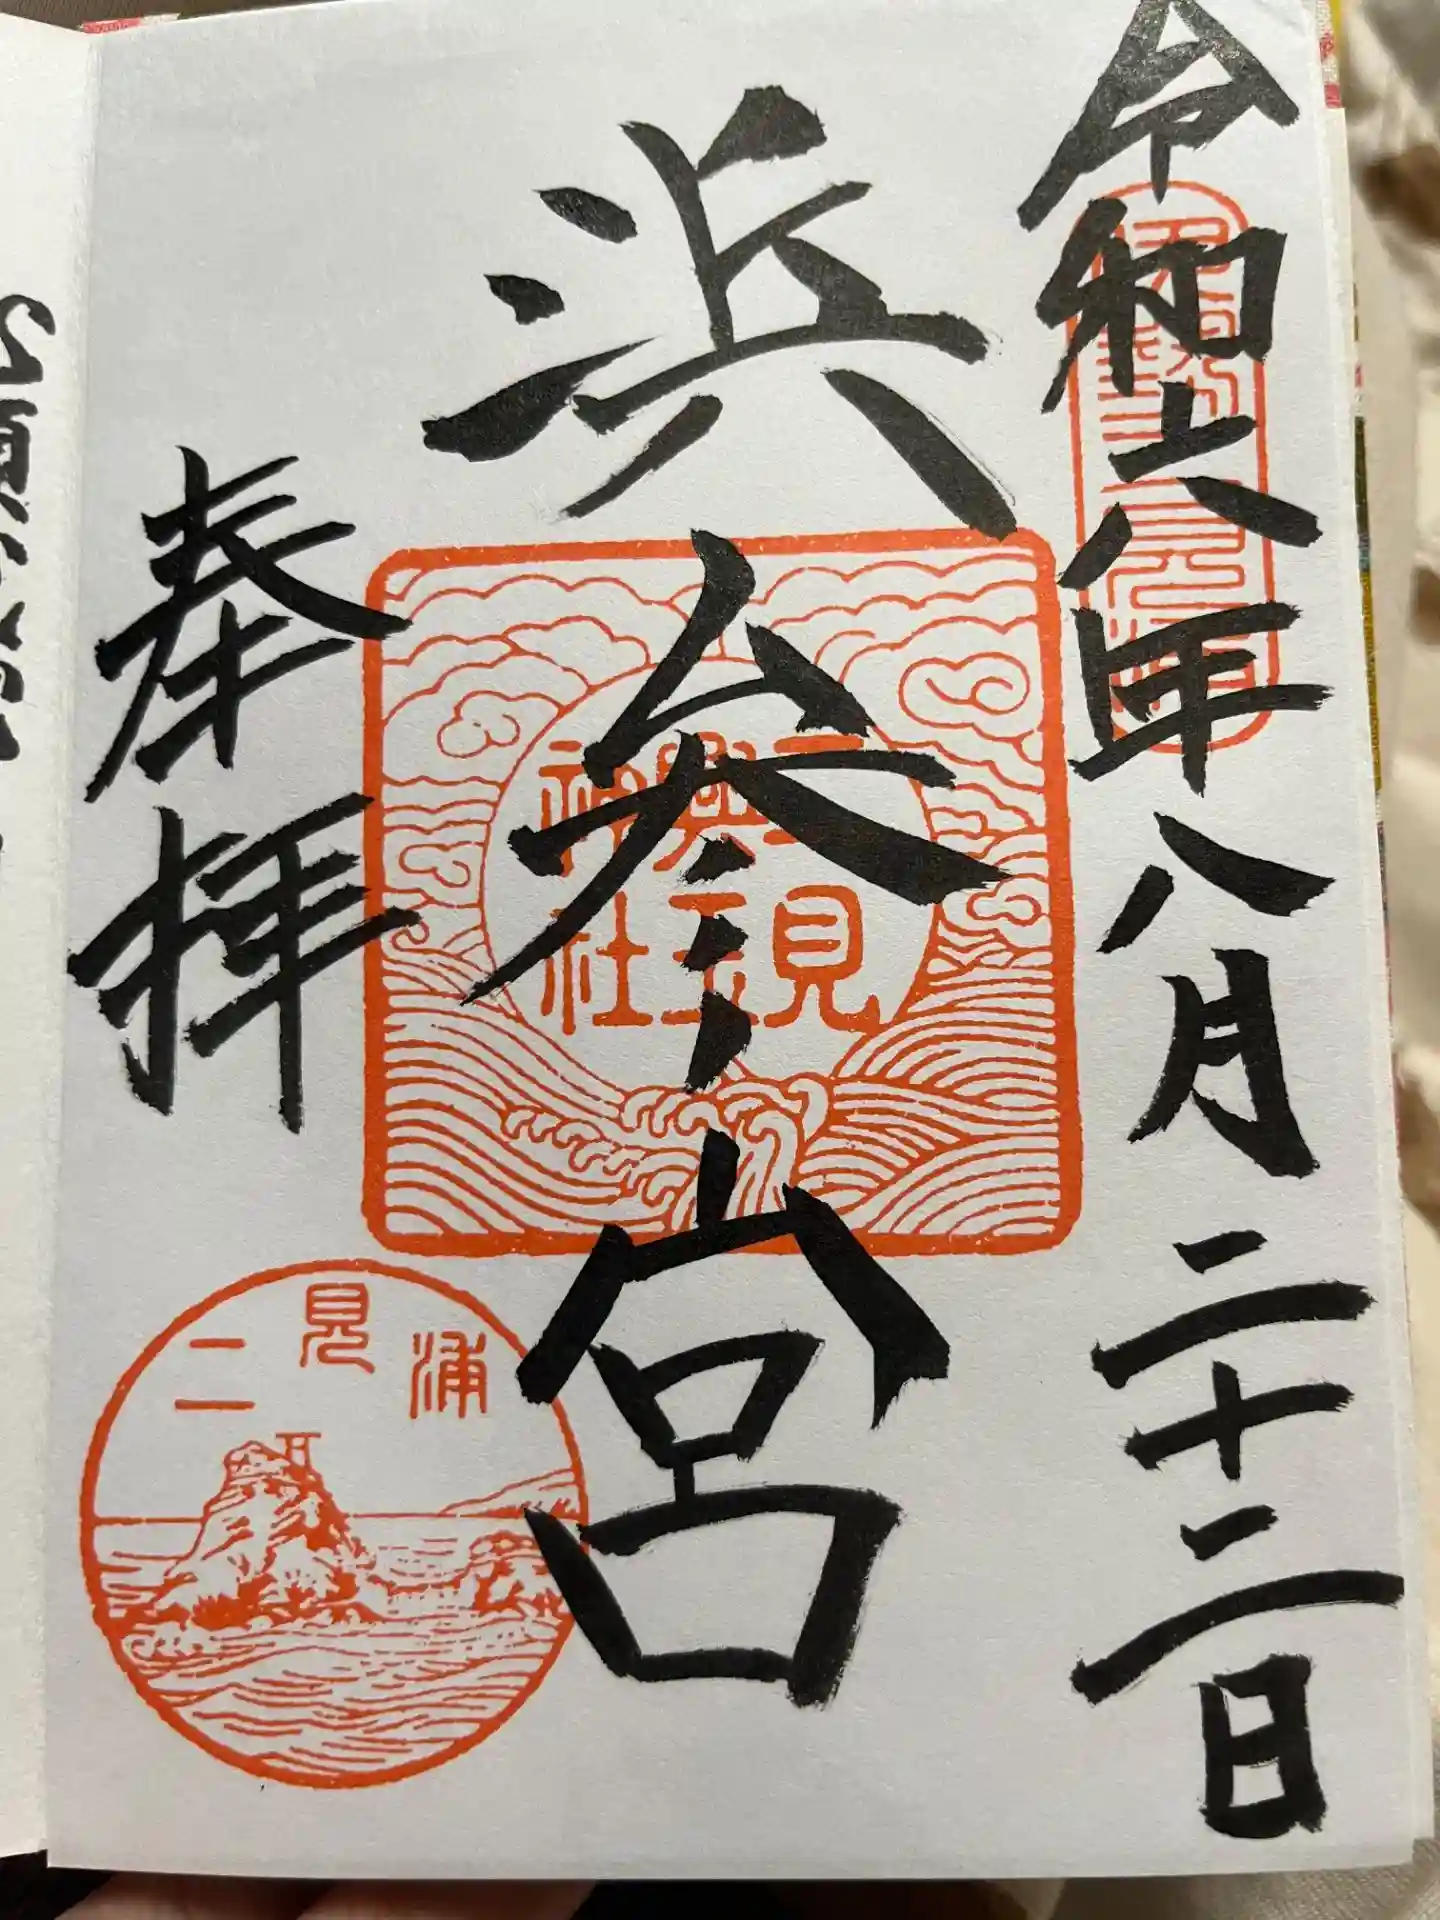 令和六年八月二十二日
浜参宮
奉拝
二見
興玉
神社
二見浦